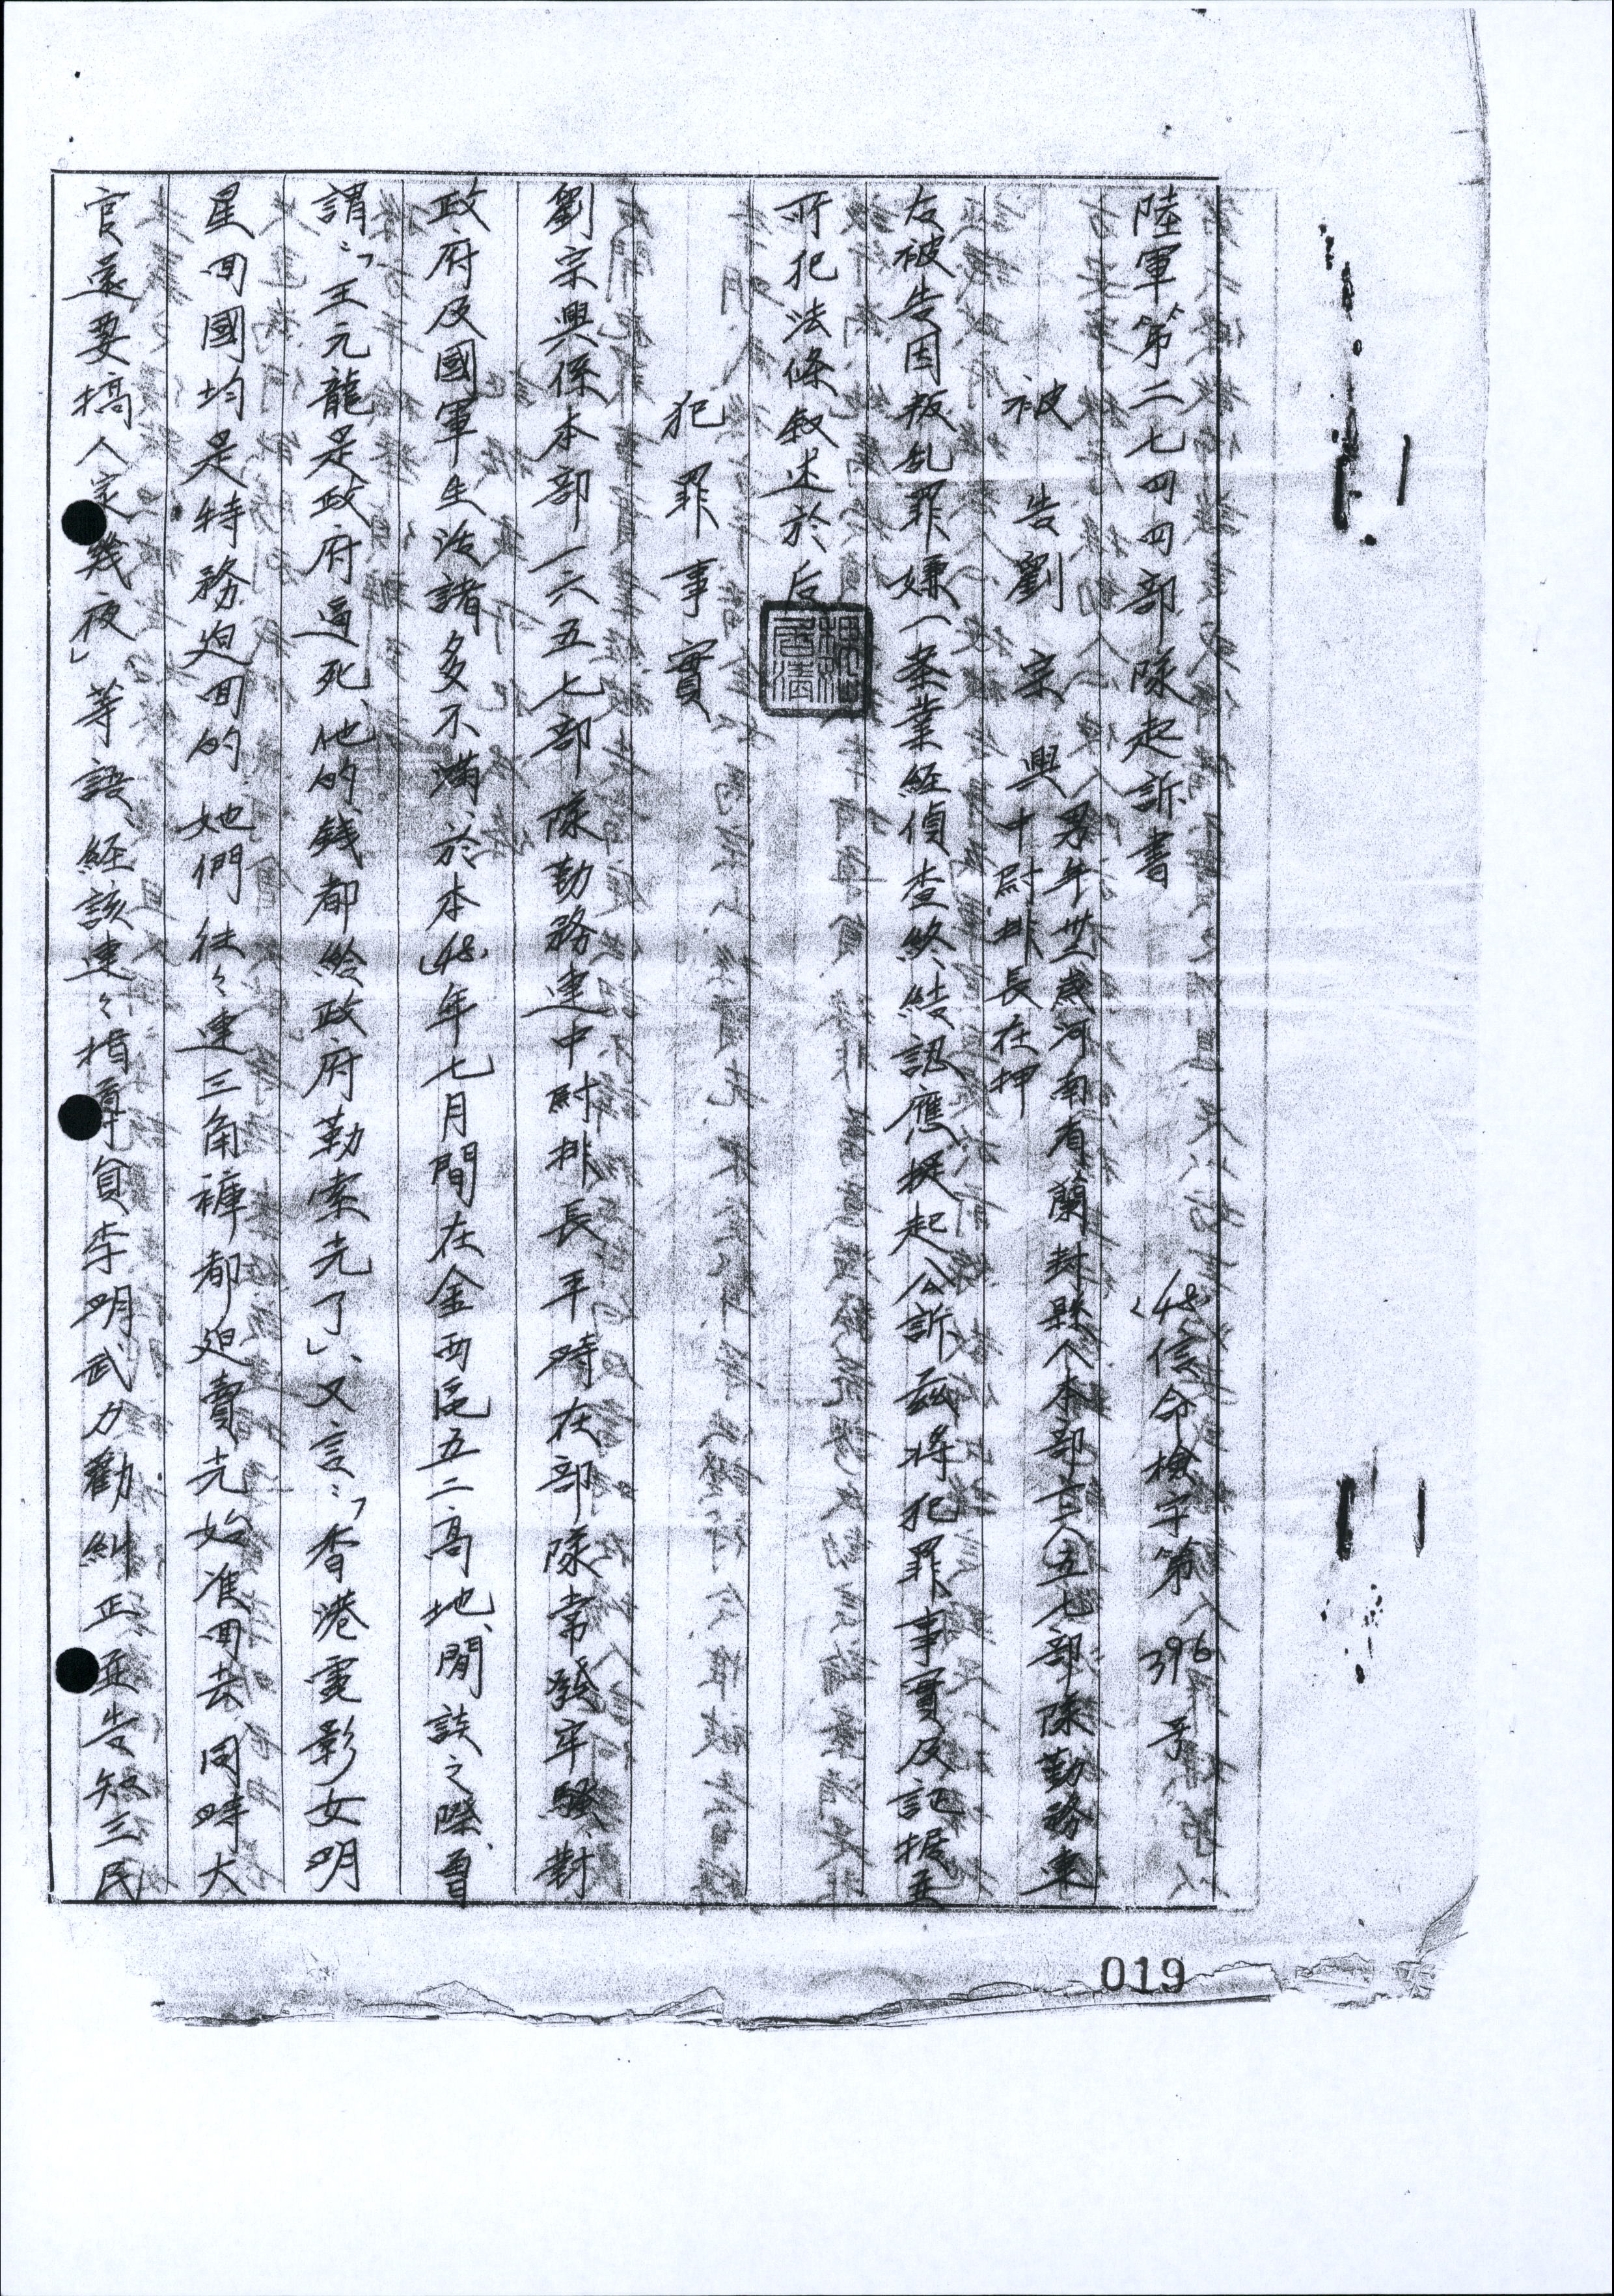 陸軍第二七四四部隊起訴書
(48)信命檢字第396号
被告劉宗興
男年卅二歲河南省蘭封縣人本部一六五七部隊勤務連
中尉排長在押
右被告因叛乱罪嫌一案業經偵查終結認應提起公訴兹將犯罪事實及証據並
所犯法條叙述於后
犯罪事實
劉宗興係本部一六五七部隊勤務連中尉排長、平時在部隊常發牢騷、對
政府及國軍生活諸多不滿、於本(48)年七月間在金西區五二高地、閒談之際、首
謂:「王元龍是政府逼死、他的錢都給政府勒索光了」、又言:「香港電影女明
星回國均是特務迫回的、她們往々連三角褲都迫賣光始准回去、同時大
官還要搞人家幾夜」等語、經該連々指導員李明武力勸糾正並告知三民
019